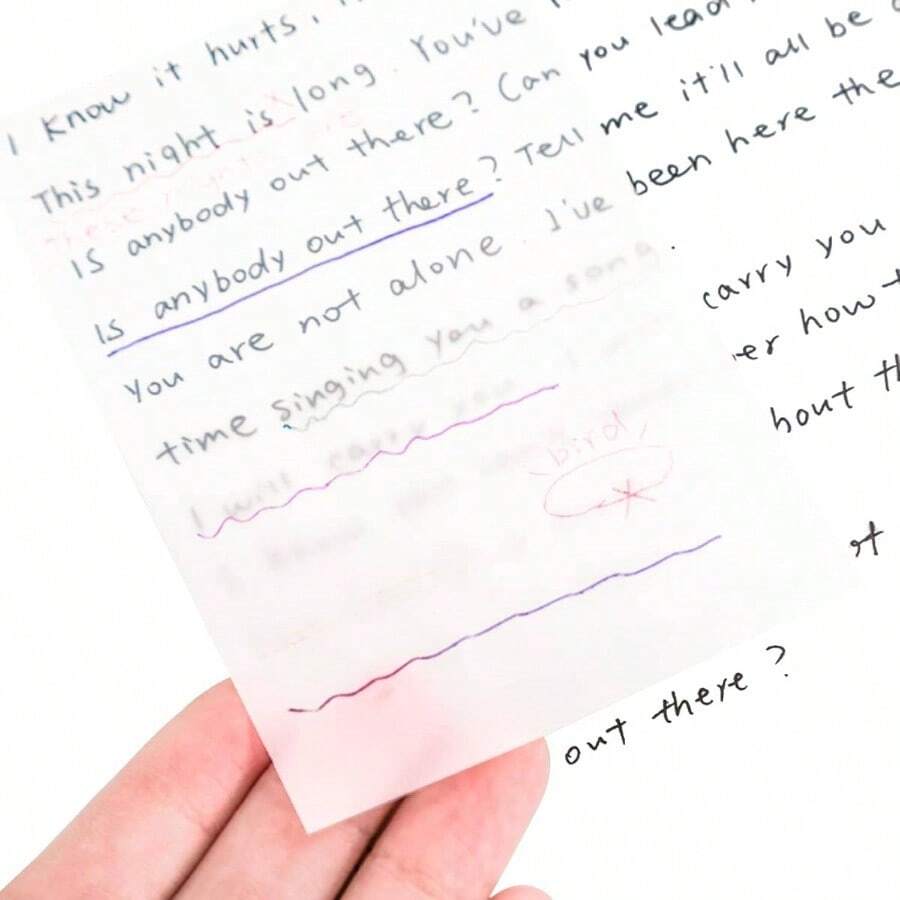 I know it hurts.
This night is long. You've
Is anybody out there? Can you lead
Is anybody out there? Tell me it'll all be
You are not alone. I've been here the
time singing you a song.
I will carry you
carry you
er how t
bout th
bird
st
out there?